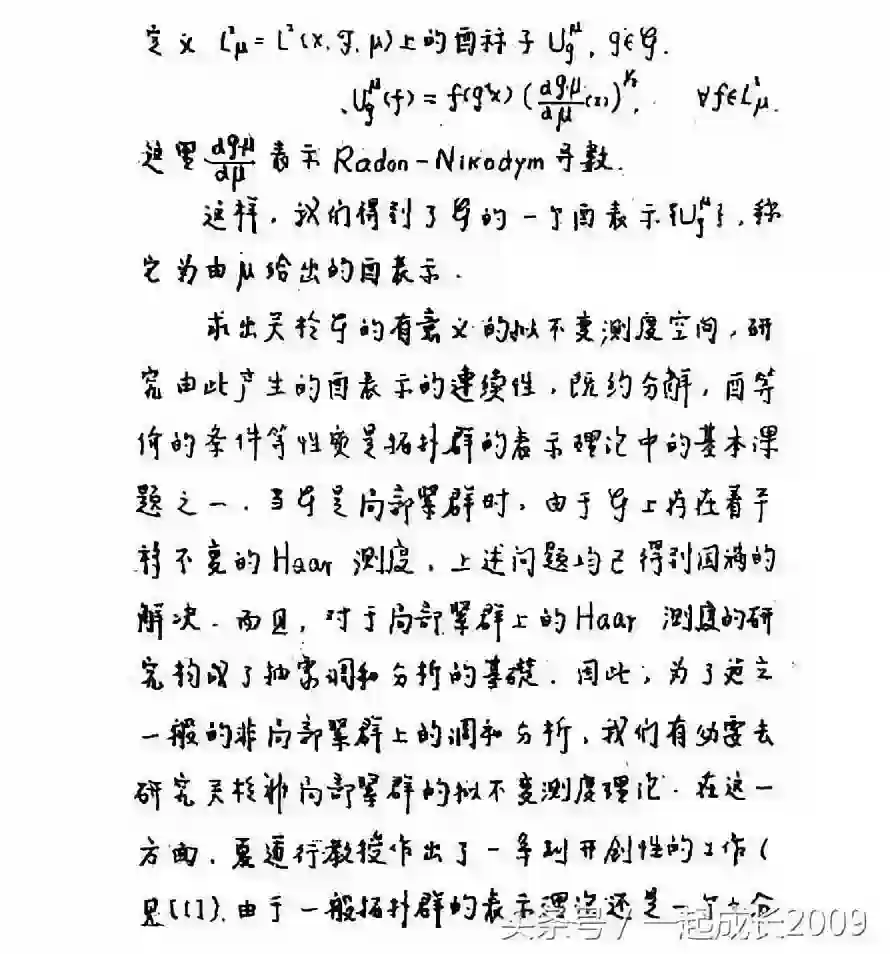 定义 L²μ = L²(X, 𝔉, μ) 上的酉算子 U_g^μ, g∈𝒢.
U_g^μ(f) = f(g⁻¹x) (dgμ/dμ (x))^{1/2}, ∀f∈L²μ.
这里 dgμ/dμ 表示 Radon-Nikodym 导数.
这样, 我们得到了 𝒢 的一个酉表示 {U_g^μ}, 称
它为由 μ 给出的酉表示.
求出关于 𝒢 的有意义的拟不变测度空间, 研
究由此产生的酉表示的连续性, 既约分解, 酉等
价的条件等性质是拓扑群的表示理论中的基本课
题之一. 当 𝒢 是局部紧群时, 由于 𝒢 上存在着平
移不变的 Haar 测度, 上述问题均已得到圆满的
解决. 而且, 对于局部紧群上的 Haar 测度的研
究构成了抽象调和分析的基礎. 因此, 为了建立
一般的非局部紧群上的调和分析, 我们有必要去
研究关于非局部紧群的拟不变测度理论. 在这一
方面, 夏道行教授作出了一系列开创性的工作 (
见[1]). 由于一般拓扑群的表示理论还是一个
头条号 / 一起成长2009